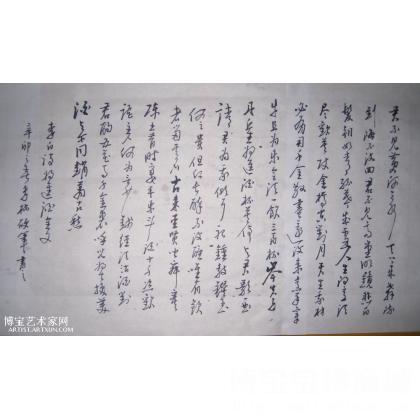 君不见黄河之水天上来奔流
到海不复回君不见高堂明镜悲白
发朝如青丝暮成雪人生得意须
尽欢莫使金樽空对月天生我材
必有用千金散尽还复来烹羊宰
牛且为乐会须一饮三百杯岑夫子
丹丘生将进酒杯莫停与君歌一曲
请君为我倾耳听钟鼓馔玉
何足贵但愿长醉不复醒唯有饮
者留其名古来圣贤皆寂寞
陈王昔时宴平乐斗酒十千恣欢
谑主人何为言少钱径须沽酒对
君酌五花马千金裘呼儿将出换美
酒与尔同销万古愁
李白诗将进酒全文
辛卯之
博宝艺术家网
ARTIST.ARTXUN.COM